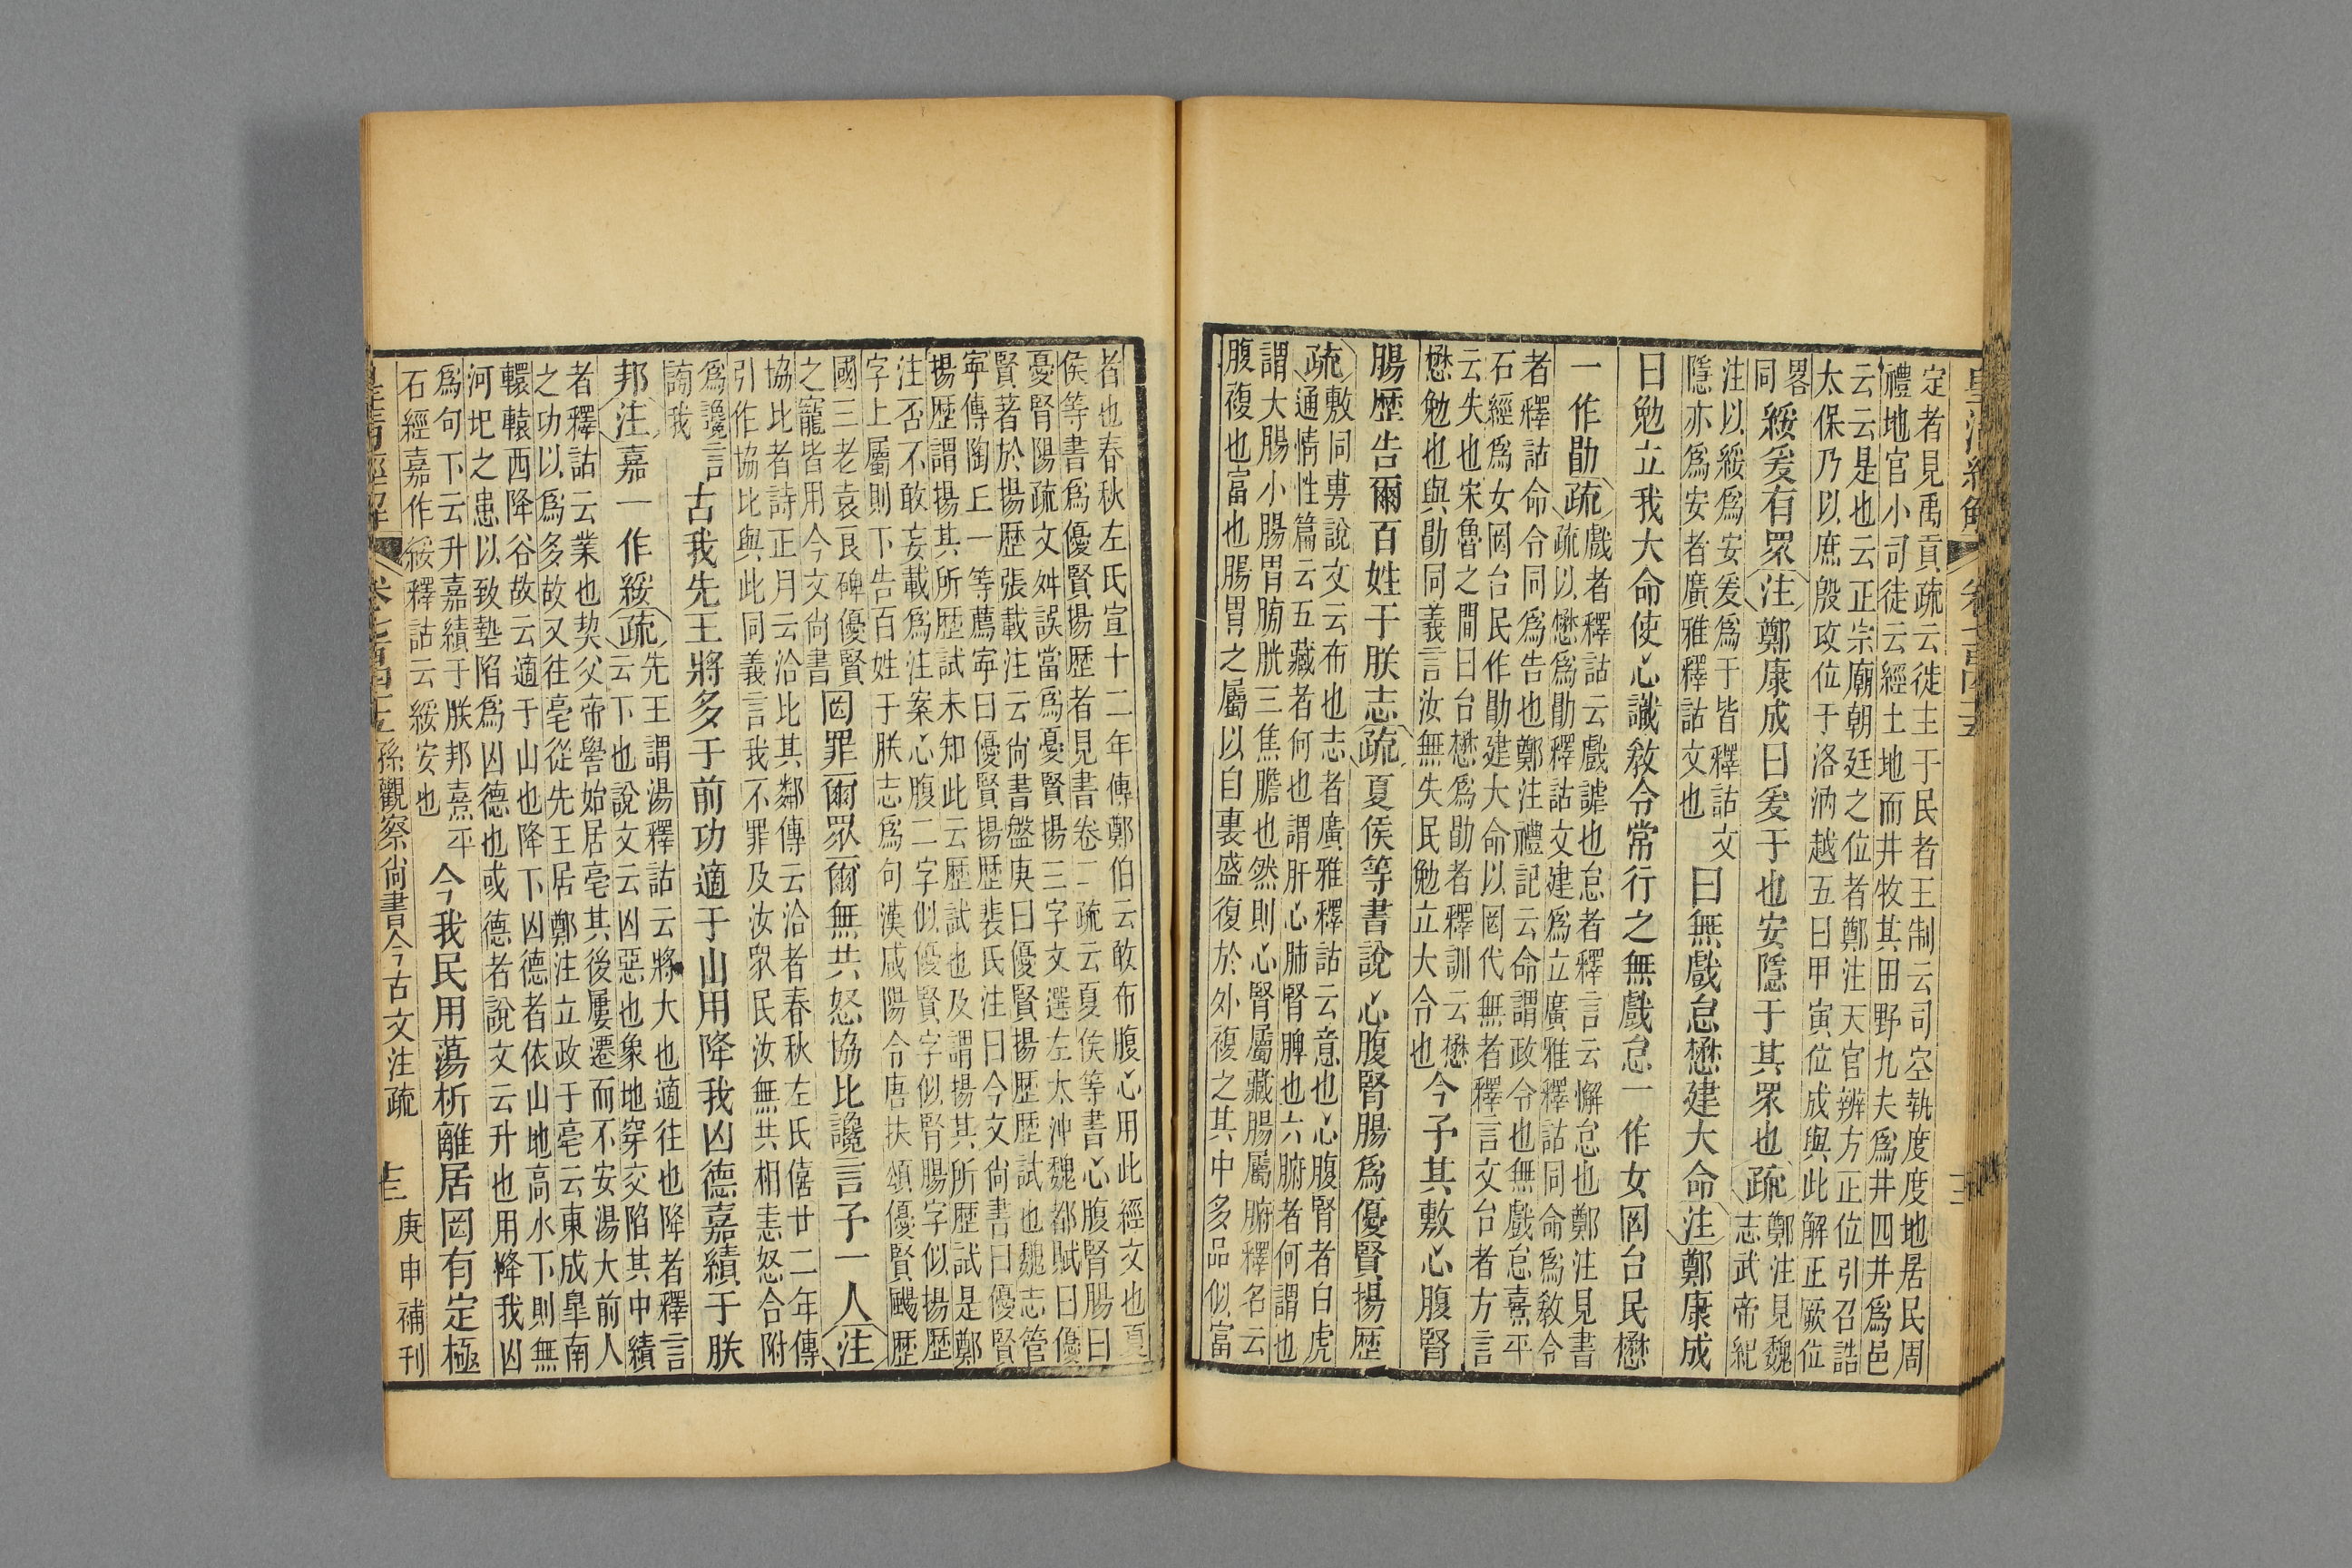 定者見禹貢疏云徒主于民者王制云司空執度度地居民周
禮地官小司徒云經土地而井牧其田野九夫爲井四井爲邑
云云是也云正宗廟朝廷之位者鄭注天官辨方正位引召誥
太保乃以庶殷攻位于洛汭越五日甲寅位成與此解正厥位
畧
同
綏爰有眾注鄭康成曰爰于也安隱于其眾也疏
鄭注見魏
志武帝紀
注以綏爲安爰爲于皆釋詁文
隱亦爲安者廣雅釋詁文也
曰無戲怠懋建大命注鄭康成
曰勉立我大命使心識敎令常行之無戲怠一作女罔台民懋
一作勖疏
戲者釋詁云戲謔也怠者釋言云懈怠也鄭注見書
疏以懋爲勖釋詁文建爲立廣雅釋詁同命爲敎令
者釋詁命令同爲告也鄭注禮記云命謂政令也無戲怠熹平
石經爲女罔台民作勖建大命以罔代無者釋言文台者方言
云失也宋魯之間曰台懋爲勖者釋訓云懋
懋勉也與勖同義言汝無失民勉立大令也
今予其敷心腹腎
腸歷告爾百姓于朕志疏夏侯等書說心腹腎腸爲優賢揚歷
疏
敷同旉說文云布也志者廣雅釋詁云意也心腹腎者白虎
通情性篇云五藏者何也謂肝心肺腎脾也六腑者何謂也
謂大腸小腸胃膀胱三焦膽也然則心腎屬藏腸屬腑釋名云
腹複也富也腸胃之屬以自裹盛復於外複之其中多品似富
者也春秋左氏宣十二年傳鄭伯云敢布腹心用此經文也夏
侯等書爲優賢揚歷者見書卷二疏云夏侯等書心腹腎腸曰
憂腎陽疏文舛誤當爲憂賢揚三字文選左太沖魏都賦曰優
賢著於揚歷張載注云尚書盤庚曰優賢揚歷歷試也魏志管
寧傳陶丘一等薦寧曰優賢揚歷裴氏注曰今文尚書曰優賢
揚歷謂揚其所歷試未知此云歷試也及謂揚其所歷試是鄭
注否不敢妄載爲注案心腹二字似優賢字似腎腸字似揚歷
字上屬則下告百姓于朕志爲句漢咸陽令唐扶頌優賢颺歷
國三老袁良碑優賢
之寵皆用今文尚書
罔罪爾眾爾無共怒協比讒言予一人注
協比者詩正月云洽比其鄰傳云洽者春秋左氏僖廿二年傳
引作協比與此同義言我不罪及汝眾民汝無共相恚怒合附
爲讒言
謗我
古我先王將多于前功適于山用降我凶德嘉績于朕
邦注嘉一作綏疏
先王謂湯釋詁云將大也適往也降者釋言
云下也說文云凶惡也象地穿交陷其中績
者釋詁云業也契父帝嚳始居亳其後屢遷而不安湯大前人
之功以爲多故又往亳從先王居鄭注立政于亳云東成皐南
轘轅西降谷故云適于山也降下凶德者依山地高水下則無
河圯之患以致墊陷爲凶德也或德者說文云升也用降我凶
爲句下云升嘉績于朕邦熹平
石經嘉作綏釋詁云綏安也
今我民用蕩析離居罔有定極
孫觀察尚書今古文注疏
庚申補刊